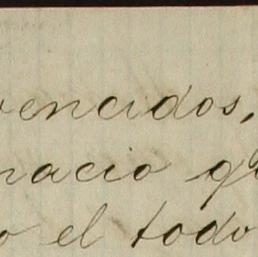 vencidos,
nacio qu
o el todo